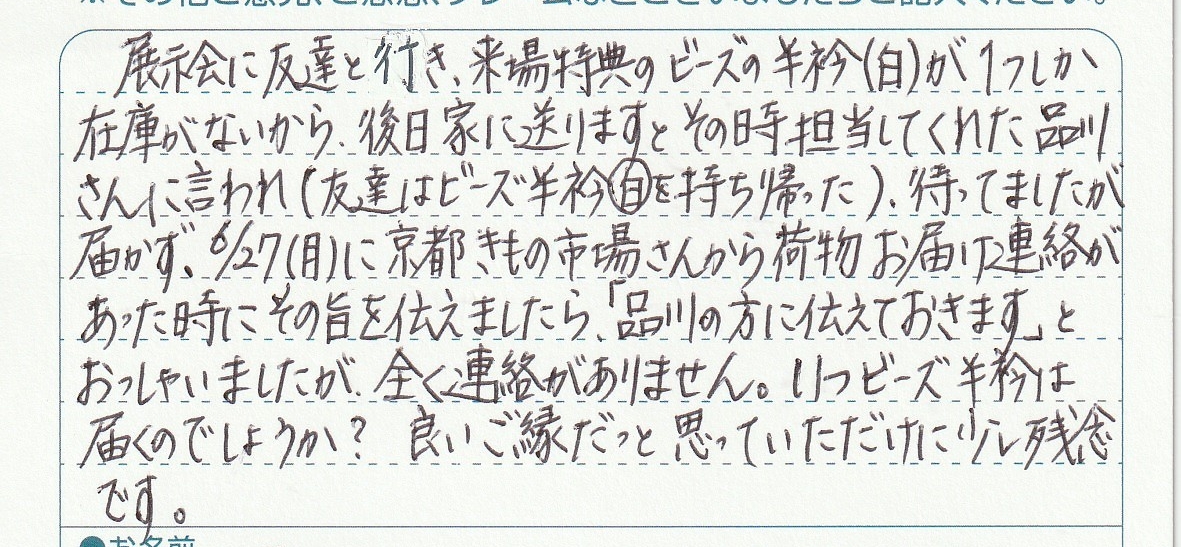 展示会に友達と行き、来場特典のビーズの半衿(白)が1つしか
在庫がないから、後日家に送りますとその時担当してくれた品川
さんに言われ(友達はビーズ半衿白を持ち帰った)、待ってましたが
届かず、6/27(月)に京都きもの市場さんから荷物お届け連絡が
あった時にその旨を伝えましたら、「品川の方に伝えておきます」と
おっしゃいましたが、全く連絡がありません。いつビーズ半衿は
届くのでしょうか? 良いご縁だっと思っていただけに少し残念
です。
●お名前